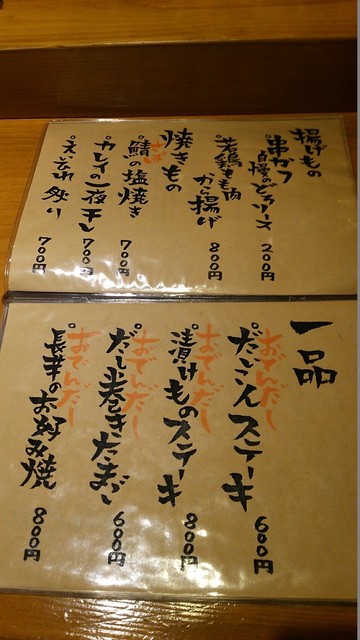 揚げもの
串かつ
自慢のどろソース
200円
若鶏もも肉
から揚げ
800円
焼きもの
さば
鯖の塩焼き
700円
カレイの一夜干し
700円
えいひれ炙り
700円
一品
おでんだし
だいこんステーキ
600円
おでんだし
漬けものステーキ
800円
おでんだし
だし巻きたまご
600円
おでんだし
長芋のお好み焼
800円